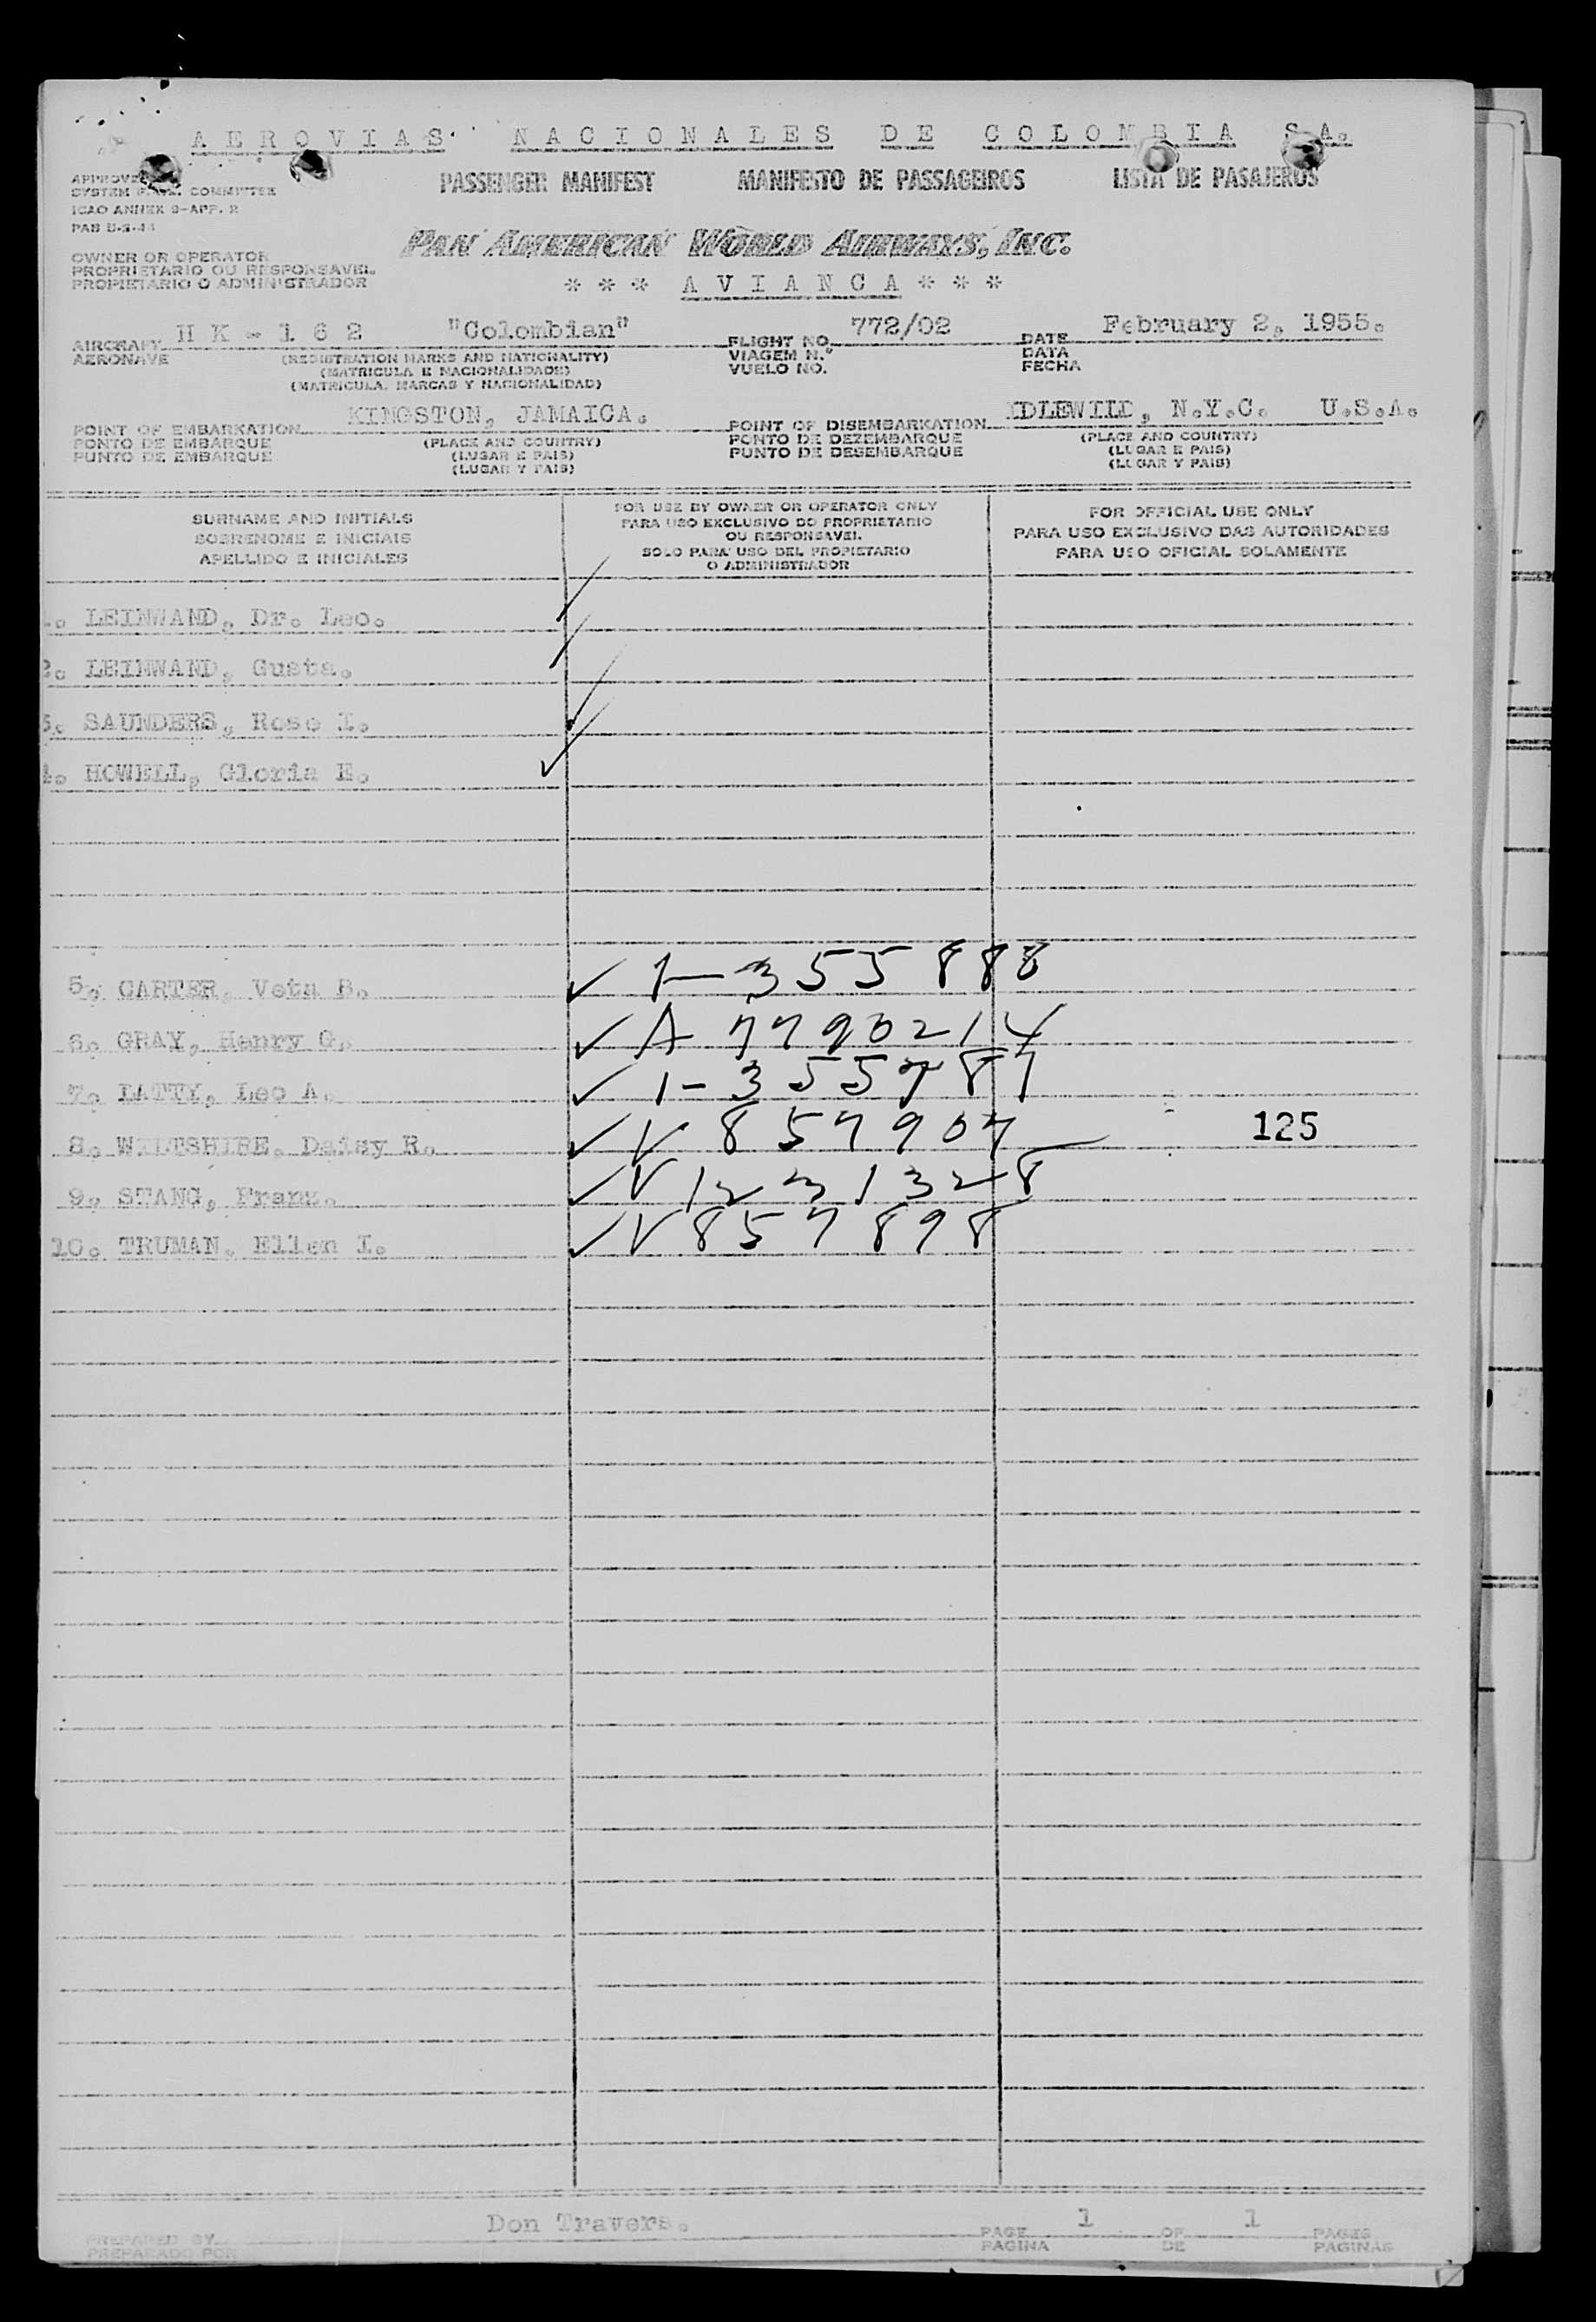 AEROVIAS NACIONALES DE COLOMBIA S.A.
PASSENGER MANIFEST MANIFESTO DE PASSAGEIROS LISTA DE PASAJEROS
APPROVED
SYSTEM COMMITTEE
ICAO ANNEX 9-APP. 2
PAN AMERICAN WORLD AIRWAYS, INC.
OWNER OR OPERATOR
PROPRIETARIO OU RESPONSAVEL
PROPIETARIO O ADMINISTRADOR
* * * AVIANCA * * *
AIRCRAFT HK-162 "Colombian" FLIGHT NO. 772/02 DATE February 2, 1955.
AERONAVE (REGISTRATION MARKS AND NATIONALITY) VIAGEM N.º DATA
(MATRICULA E NACIONALIDADE) VUELO NO. FECHA
(MATRICULA, MARCAS Y NACIONALIDAD)
POINT OF EMBARKATION KINGSTON, JAMAICA. POINT OF DISEMBARKATION IDLEWILD, N.Y.C. U.S.A.
PONTO DE EMBARQUE (PLACE AND COUNTRY) PONTO DE DEZEMBARQUE (PLACE AND COUNTRY)
PUNTO DE EMBARQUE (LUGAR E PAIS) PUNTO DE DESEMBARQUE (LUGAR E PAIS)
(LUGAR Y PAIS) (LUGAR Y PAIS)
SURNAME AND INITIALS
SOBRENOME E INICIAIS
APELLIDO E INICIALES
FOR USE BY OWNER OR OPERATOR ONLY
PARA USO EXCLUSIVO DO PROPRIETARIO
OU RESPONSAVEL
SOLO PARA USO DEL PROPIETARIO
O ADMINISTRADOR
FOR OFFICIAL USE ONLY
PARA USO EXCLUSIVO DAS AUTORIDADES
PARA USO OFICIAL SOLAMENTE
1. LEINWAND, Dr. Leo. ✓
2. LEINWAND, Gusta. ✓
3. SAUNDERS, Rose I. ✓
4. HOWELL, Gloria E. ✓
5. CARTER, Veta B. ✓ 1-355888
6. GRAY, Henry G. ✓ A 7790214
7. LATTY, Leo A. ✓ 1-355787
8. WILTSHIRE, Daisy R. ✓ V 857907 125
9. STANG, Franz. ✓ V 1231328
10. TRUMAN, Ellen I. ✓ V 857898
PREPARED BY Don Travers. PAGE 1 OF 1 PAGES
PREPARADO POR PAGINA DE PAGINAS